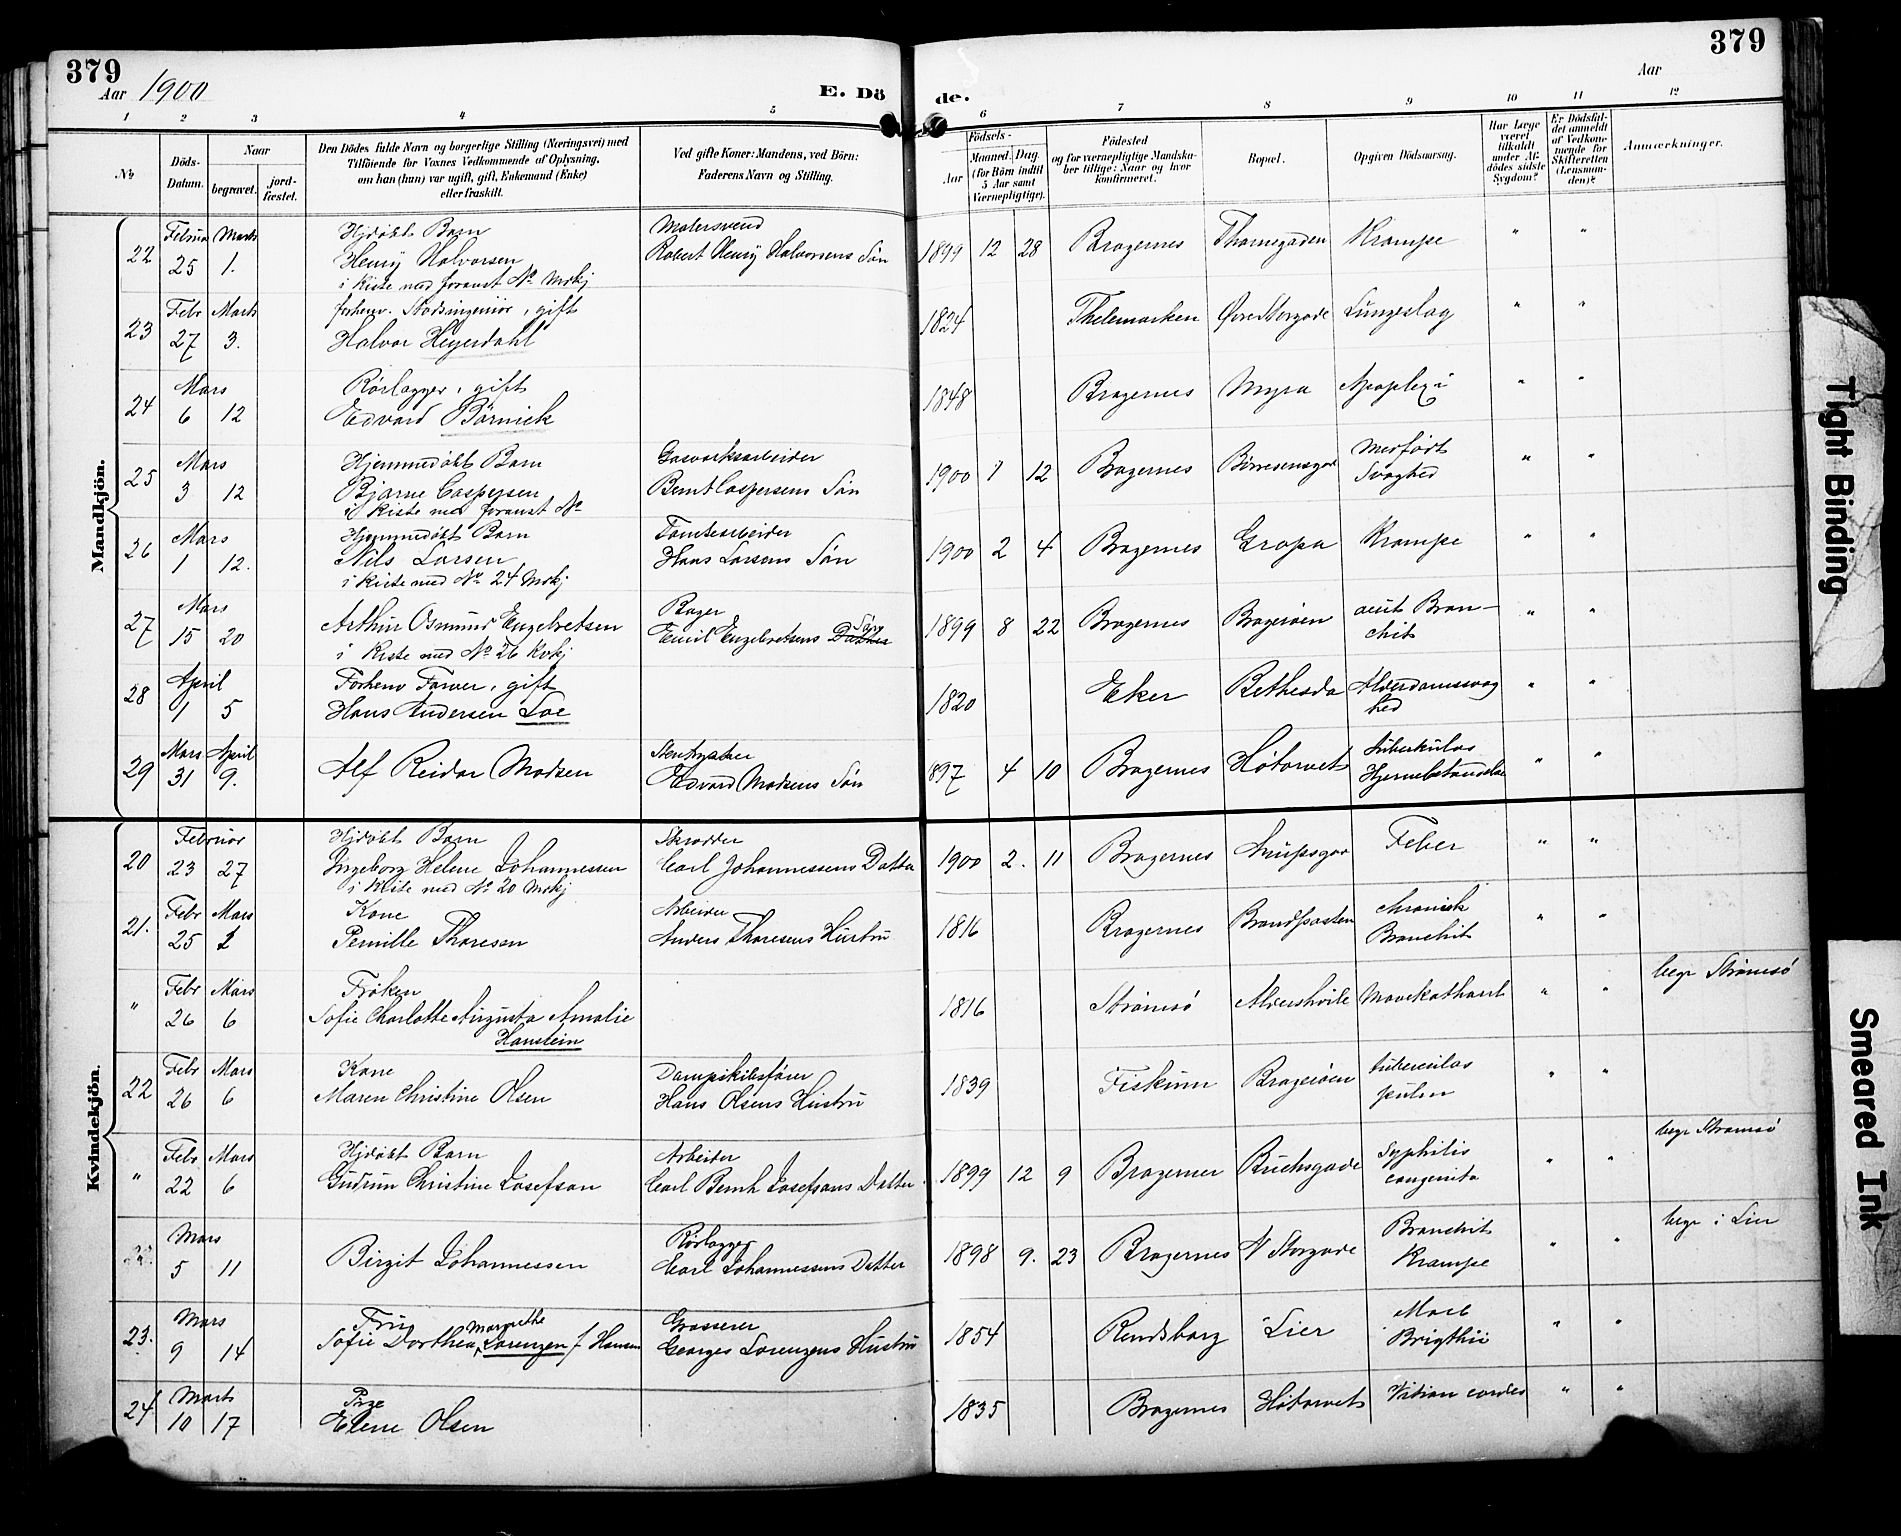 379
379
Aar 1900
E. Dö
de.
Aar
1 2 3 4 5 6 7 8 9 10 11 12
No
Döds-Datum.
Naar
begravet.
jord-fæstet.
Den Dödes fulde Navn og borgerlige Stilling (Næringsvei) med
Tilföiende for Voxnes Vedkommende af Oplysning,
om han (hun) var ugift, gift, Enkemand (Enke)
eller fraskilt.
Ved gifte Koner: Mandens, ved Börn:
Faderens Navn og Stilling.
Födsels-
Aar
Maaned. Dag.
(for Börn indtil
5 Aar samt
Værnepligtige).
Födested
og for værnepligtige Mandska-
ber tillige: Naar og hvor
konfirmeret.
Bopæl.
Opgiven Dödsaarsag.
Har Læge
været
tilkaldt
under Af-
dödes sidste
Sygdom?
Er Dödsfal-
det anmeldt
af Vedkom-
mende for
Skifteretten
(Lensman-
den)?
Anmærkninger.
Mandkjön.
Februar Marts Hjdøbt Barn Malersvend
22 25 1. Henrÿ Halvorsen Robert Henrÿ Halvorsens Søn 1899 12 28 Bragernes Thamsgaden Krampe " "
i Kiste med foranst No Mdkj
Febr Marts forhenv. Stadsingeniør, gift
23 27 3. Halvor Heyerdahl 1824 Thelemarken Øvre Storgade Lungeslag " "
Mars Rörlægger, gift
24 6 12 Edvard Börnick 1848 Bragernes Myra Apoplexi " "
Mars Hjemmedøbt Barn Gasværksarbeider
25 3 12 Bjarne Caspersen Bernt Caspersens Søn 1900 1 12 Bragernes Börresensgad Medfødt Svaghed " "
i Kiste med foranst No
Mars Hjemmedøbt Barn Tomtearbeider
26 1 12. Nils Larsen Hans Larsens Søn 1900 2 4 Bragernes Gropa Krampe " "
i Kiste med No 24 Mdkj
Mars Bager
27 15 20 Arthur Osmund Engebretsen Emil Engebretsens Datter Søn 1899 8 22 Bragernes Bragerøen acut Bron-
chit " "
i Kiste med No 26 Kvkj
April Forhenv Farver, gift
28 1 5 Hans Andersen Loe 1820 Eker Bethesda Alderdomssvag
hed " "
Mars April Stenhugger
29 31 9. Alf Reidar Madsen Edvard Madsens Søn 897 4 10 Bragernes Høtorvet tuberkuløs
Hjernebetændelse " "
Kvindekjön.
Februar Hjdøbt Barn Skrædder
20 23 27 Ingeborg Helene Johannessen Carl Johannessens Datter 1900 2. 11 Bragernes Feber " "
i Kiste med No 20 Mdkj
Febr Mars Kone Arbeider
21. 25 2 Pernille Thoresen Anders Thoresens Hustru 1816 Bragernes Brandposten chronisk
Bronchit " "
Febr Mars Frøken
" 26 6 Sofie Charlotte Augusta Amalie 1816 Strømsö Alvershvile Mavekatharrh " " begr Strømsö
Hanstein
Febr Mars Kone Dampskibsfører
22 26 6 Maren Christine Olsen Hans Olsens Hustru 1839 Fiskum Bragerøen tuberculos
pulm " "
Febr Mars Hjdøbt Barn Arbeider
" 22 6 Gudrun Christine Josefson Carl Bernh Josefsons Datter 1899 12 9 Bragernes Buchsgade Syphilis
congenita " " begr Strømsö
Mars Rørlægger
5 11 Birgit Johannessen Carl Johannessens Datter 1898 9. 23 Bragernes N Storgade Bronchit
Krampe " " begr i Lier
Mars Fru Grosserer
23. 9 14 Sofie Dorthea Margrethe Lorenzen f Hansen Georges Lorenzens Hustru 1854 Rendsborg Lier Morb
Brigthii " "
Marts Pige
24 10 17 Elene Olsen 1835 Bragernes Høtorvet Vitium cordis " "
Tight Binding
Smeared Ink